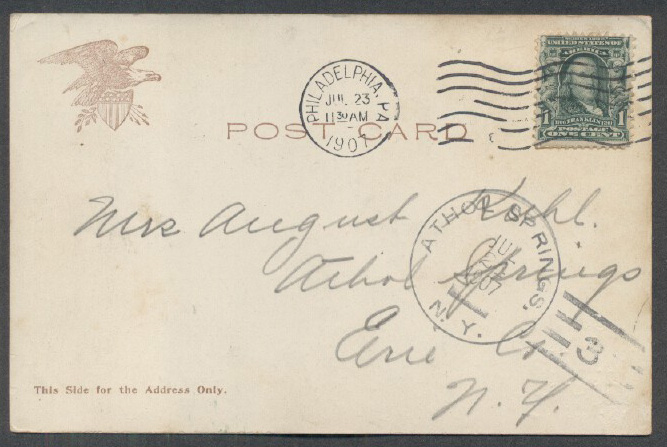 PHILADELPHIA, PA.
JUL 23
11 30 AM
1907
UNITED STATES OF
AMERICA
1 1
BENJ. FRANKLIN
POSTAGE
ONE CENT
POST CARD
Mrs August Kuhl.
Athol Springs
Erie Co.
N.Y.
ATHOL SPRINGS,
JUL
1907
N.Y.
3
This Side for the Address Only.